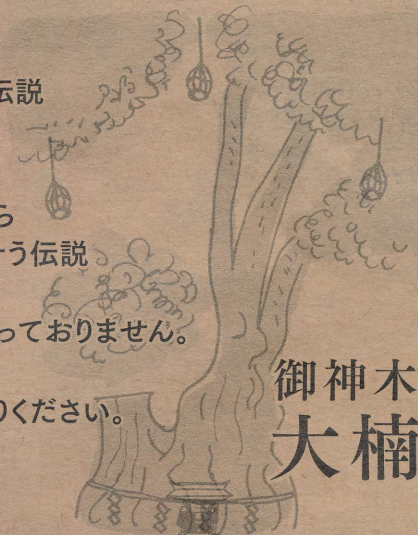 伝説
ら
う伝説
っておりません。
りください。
御神木
大楠